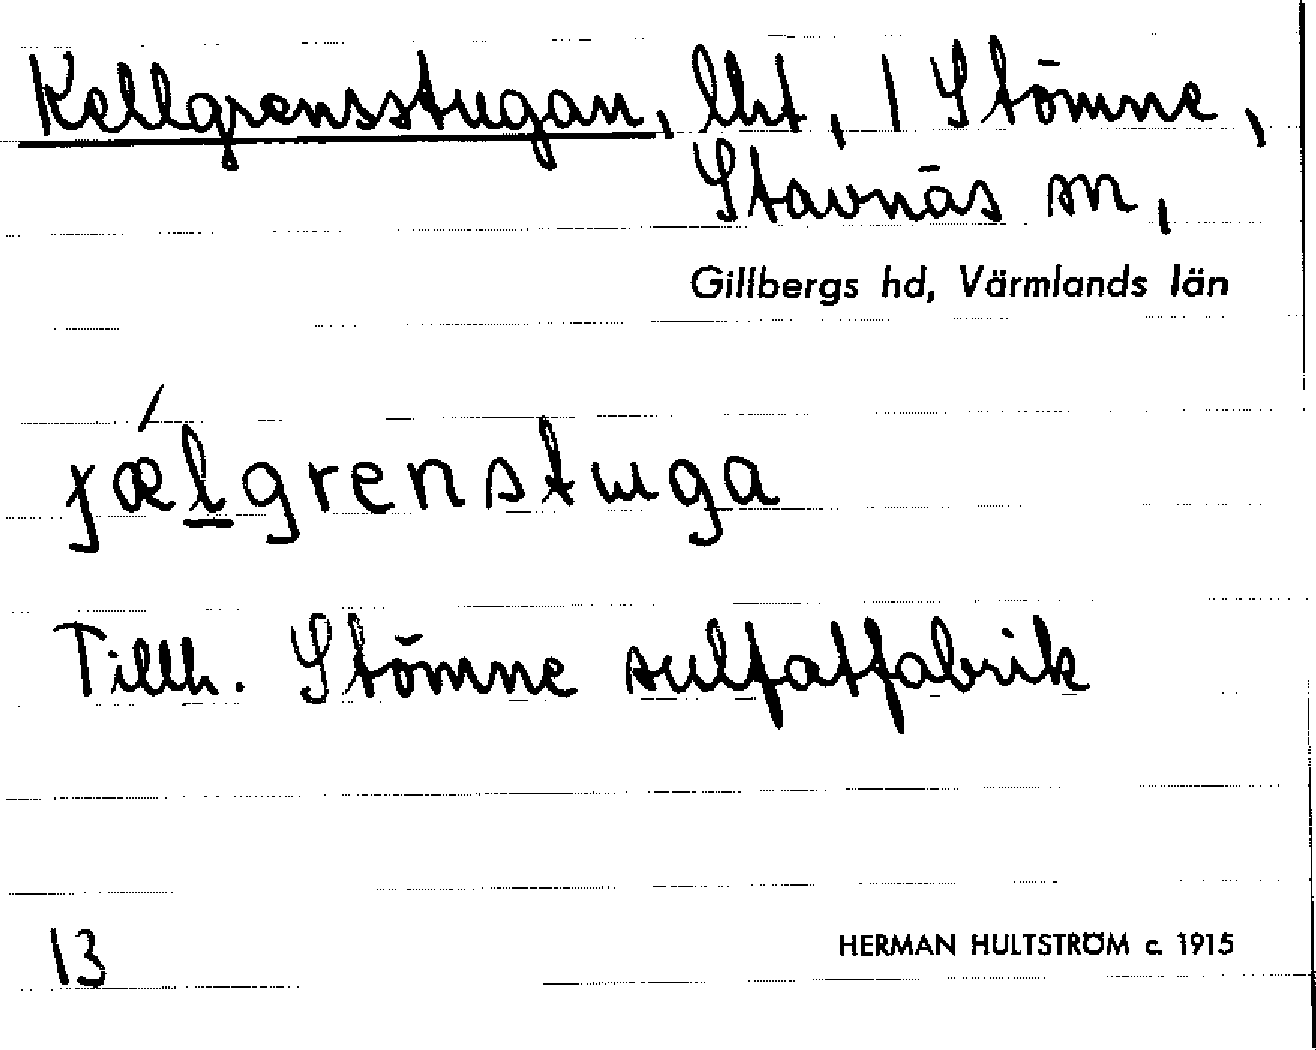 Kellgrensstugan, lht, 1 Stömne,
Stavnäs sn,
Gillbergs hd, Värmlands län
Tillh. Stömne sulfatfabrik
13
HERMAN HULTSTRÖM c. 1915